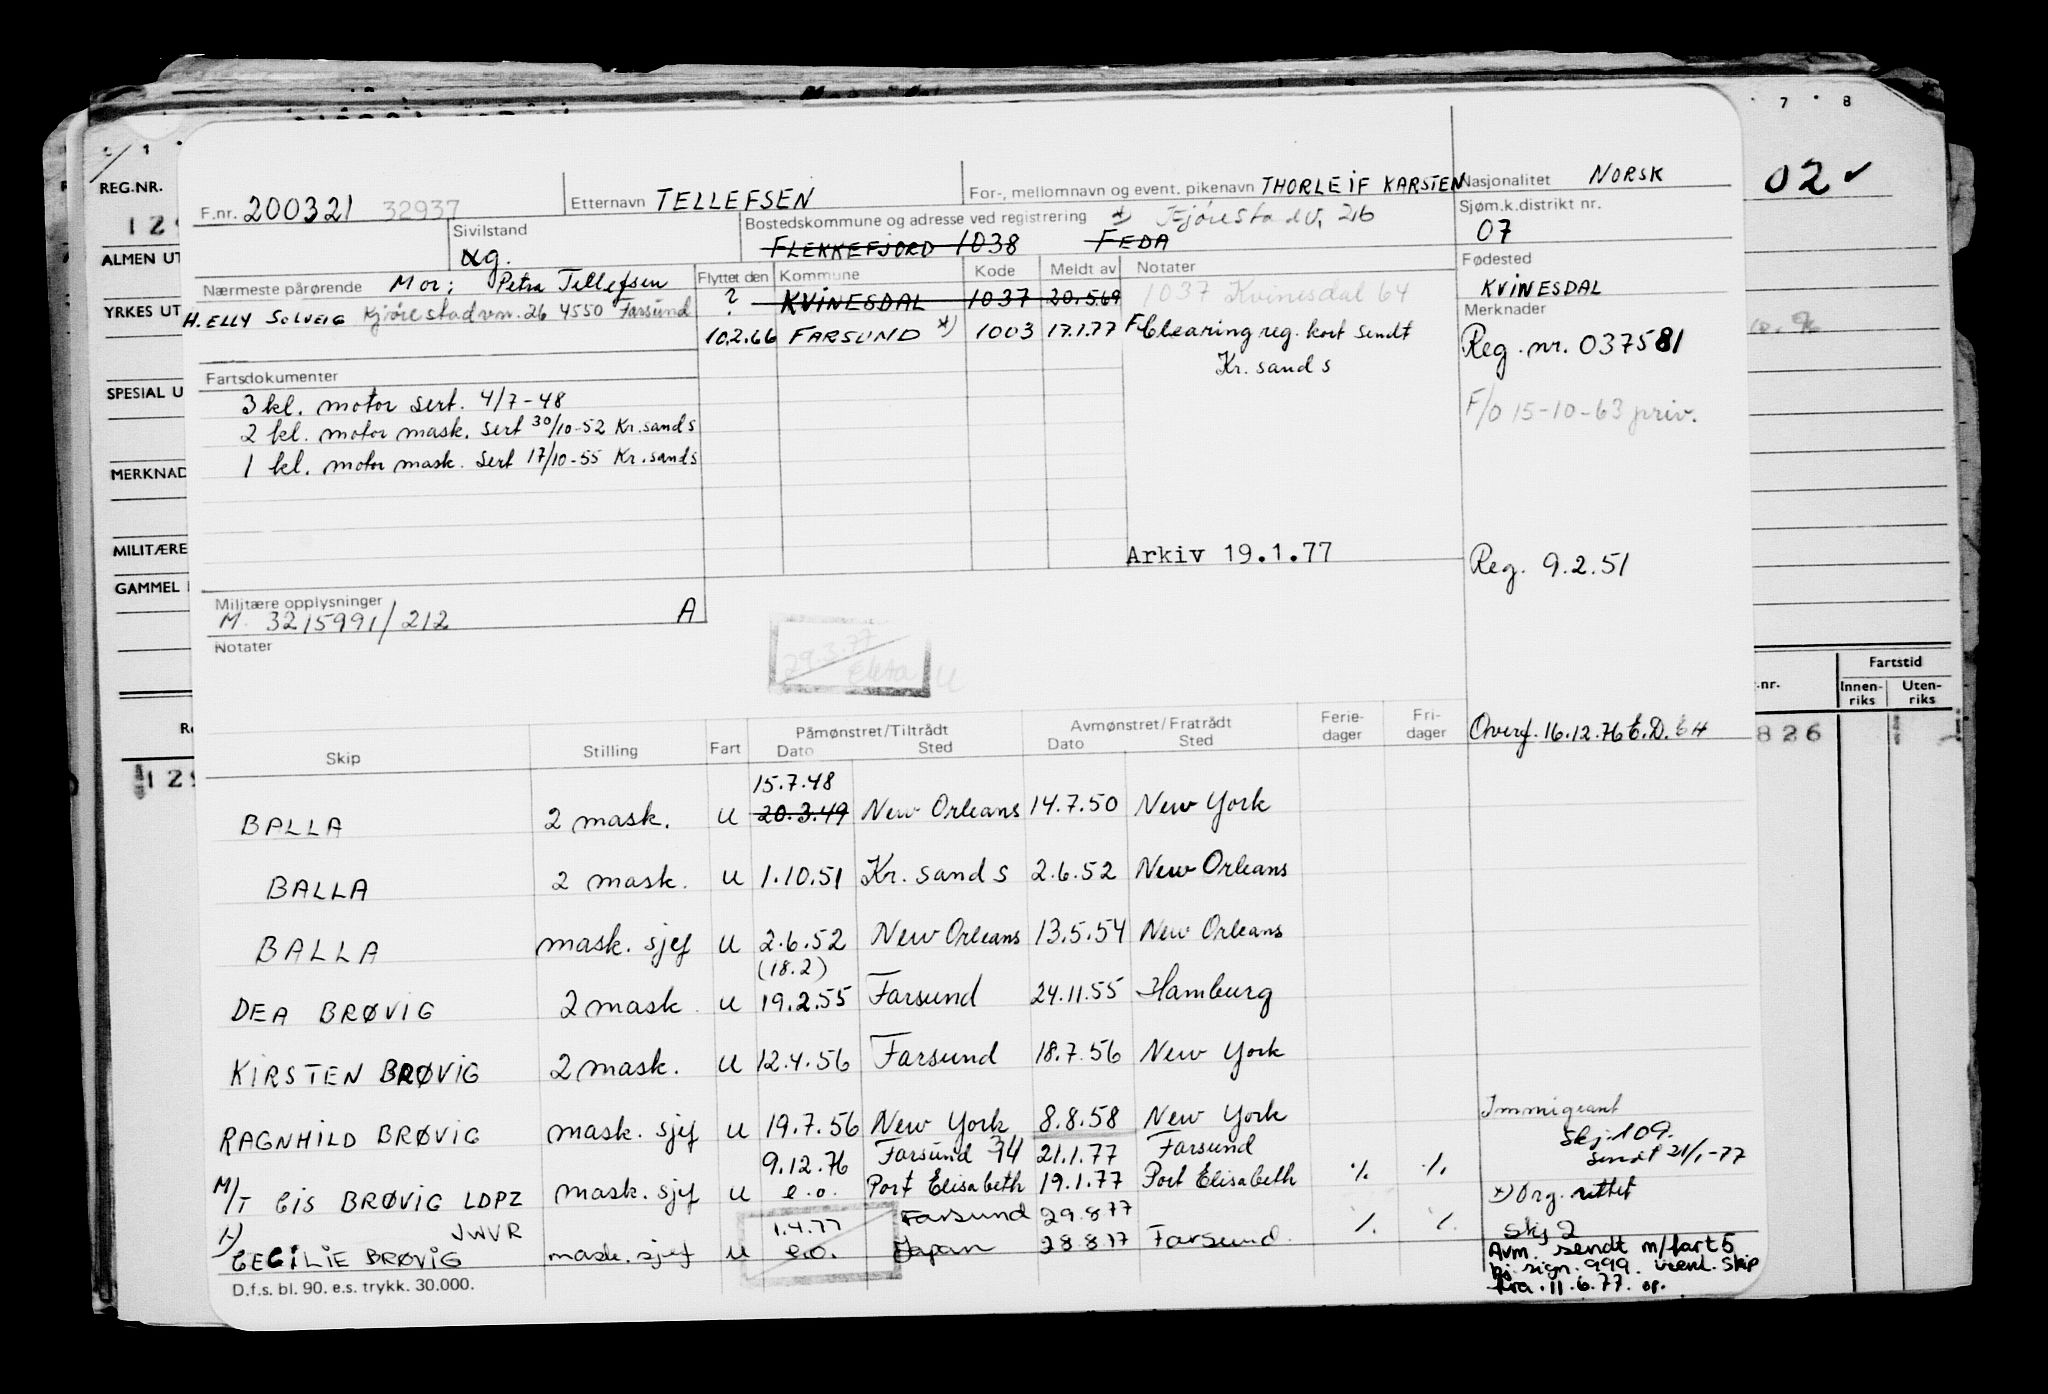 7 8
REG.NR.
02 ✓
F.nr. 200321 32937
Etternavn TELLEFSEN
For-, mellomnavn og event. pikenavn THORLEIF KARSTEN
Nasjonalitet NORSK
Sivilstand
ug.
Bostedskommune og adresse ved registrering
FLEKKEFJORD 1038 FEDA
Sjøm.k.distrikt nr.
07
ALMEN UT
Nærmeste pårørende Mor: Petra Tellefsen
H. ELLY SOLVEIG 26 4550 Farsund
Flyttet den Kommune Kode Meldt av Notater
? KVINESDAL 1037 20.5.69 1037 Kvinesdal 64
10.2.66 FARSUND *) 1003 17.1.77 Clearing reg. kort sendt
Kr. sand s
Fødested
KVINESDAL
Merknader
Reg. nr. 037581
F/O 15-10-63 priv.
YRKES UT
Fartsdokumenter
3 kl. motor sert. 4/7-48
2 kl. motor mask. sert 30/10-52 Kr.sand s
1 kl. motor mask. sert 17/10-55 Kr.sand s
SPESIAL U
MERKNAD
MILITÆRE
GAMMEL
Arkiv 19.1.77
Reg. 9.2.51
Militære opplysninger
M. 3215991/212 A
Notater
29.3.77
Fartstid
.nr. Innen-riks Uten-riks
826
Overf. 16.12.76 E.D. 64
Skip Stilling Fart Påmønstret/Tiltrådt Dato Sted Avmønstret/Fratrådt Dato Sted Ferie-dager Fri-dager
15.7.48
BALLA 2 mask. U 20.3.49 New Orleans 14.7.50 New York
BALLA 2 mask. U 1.10.51 Kr. sand s 2.6.52 New Orleans
BALLA mask. sjef U 2.6.52 New Orleans 13.5.54 New Orleans
(18.2)
DEA BRØVIG 2 mask. U 19.2.55 Farsund 24.11.55 Hamburg
KIRSTEN BRØVIG 2 mask. U 12.4.56 Farsund 18.7.56 New York
RAGNHILD BRØVIG mask. sjef U 19.7.56 New York 8.8.58 New York
9.12.76 Farsund 21.1.77 Farsund
M/T CIS BRØVIG LDPZ mask. sjef U e.o. Port Elisabeth 19.1.77 Port Elisabeth % %
JWVR 1.4.77 Farsund 29.8.77
CECILIE BRØVIG mask. sjef U e.o. Japan 28.8.77 Farsund. % %
Skj. 109.
sendt 21/1-77
*) Org. rettet
Skj 2
Avm. sendt m/fart 5
sign. 999. vedl. Skip
fra 11.6.77. op.
D.f.s. bl. 90. e.s. trykk. 30.000.